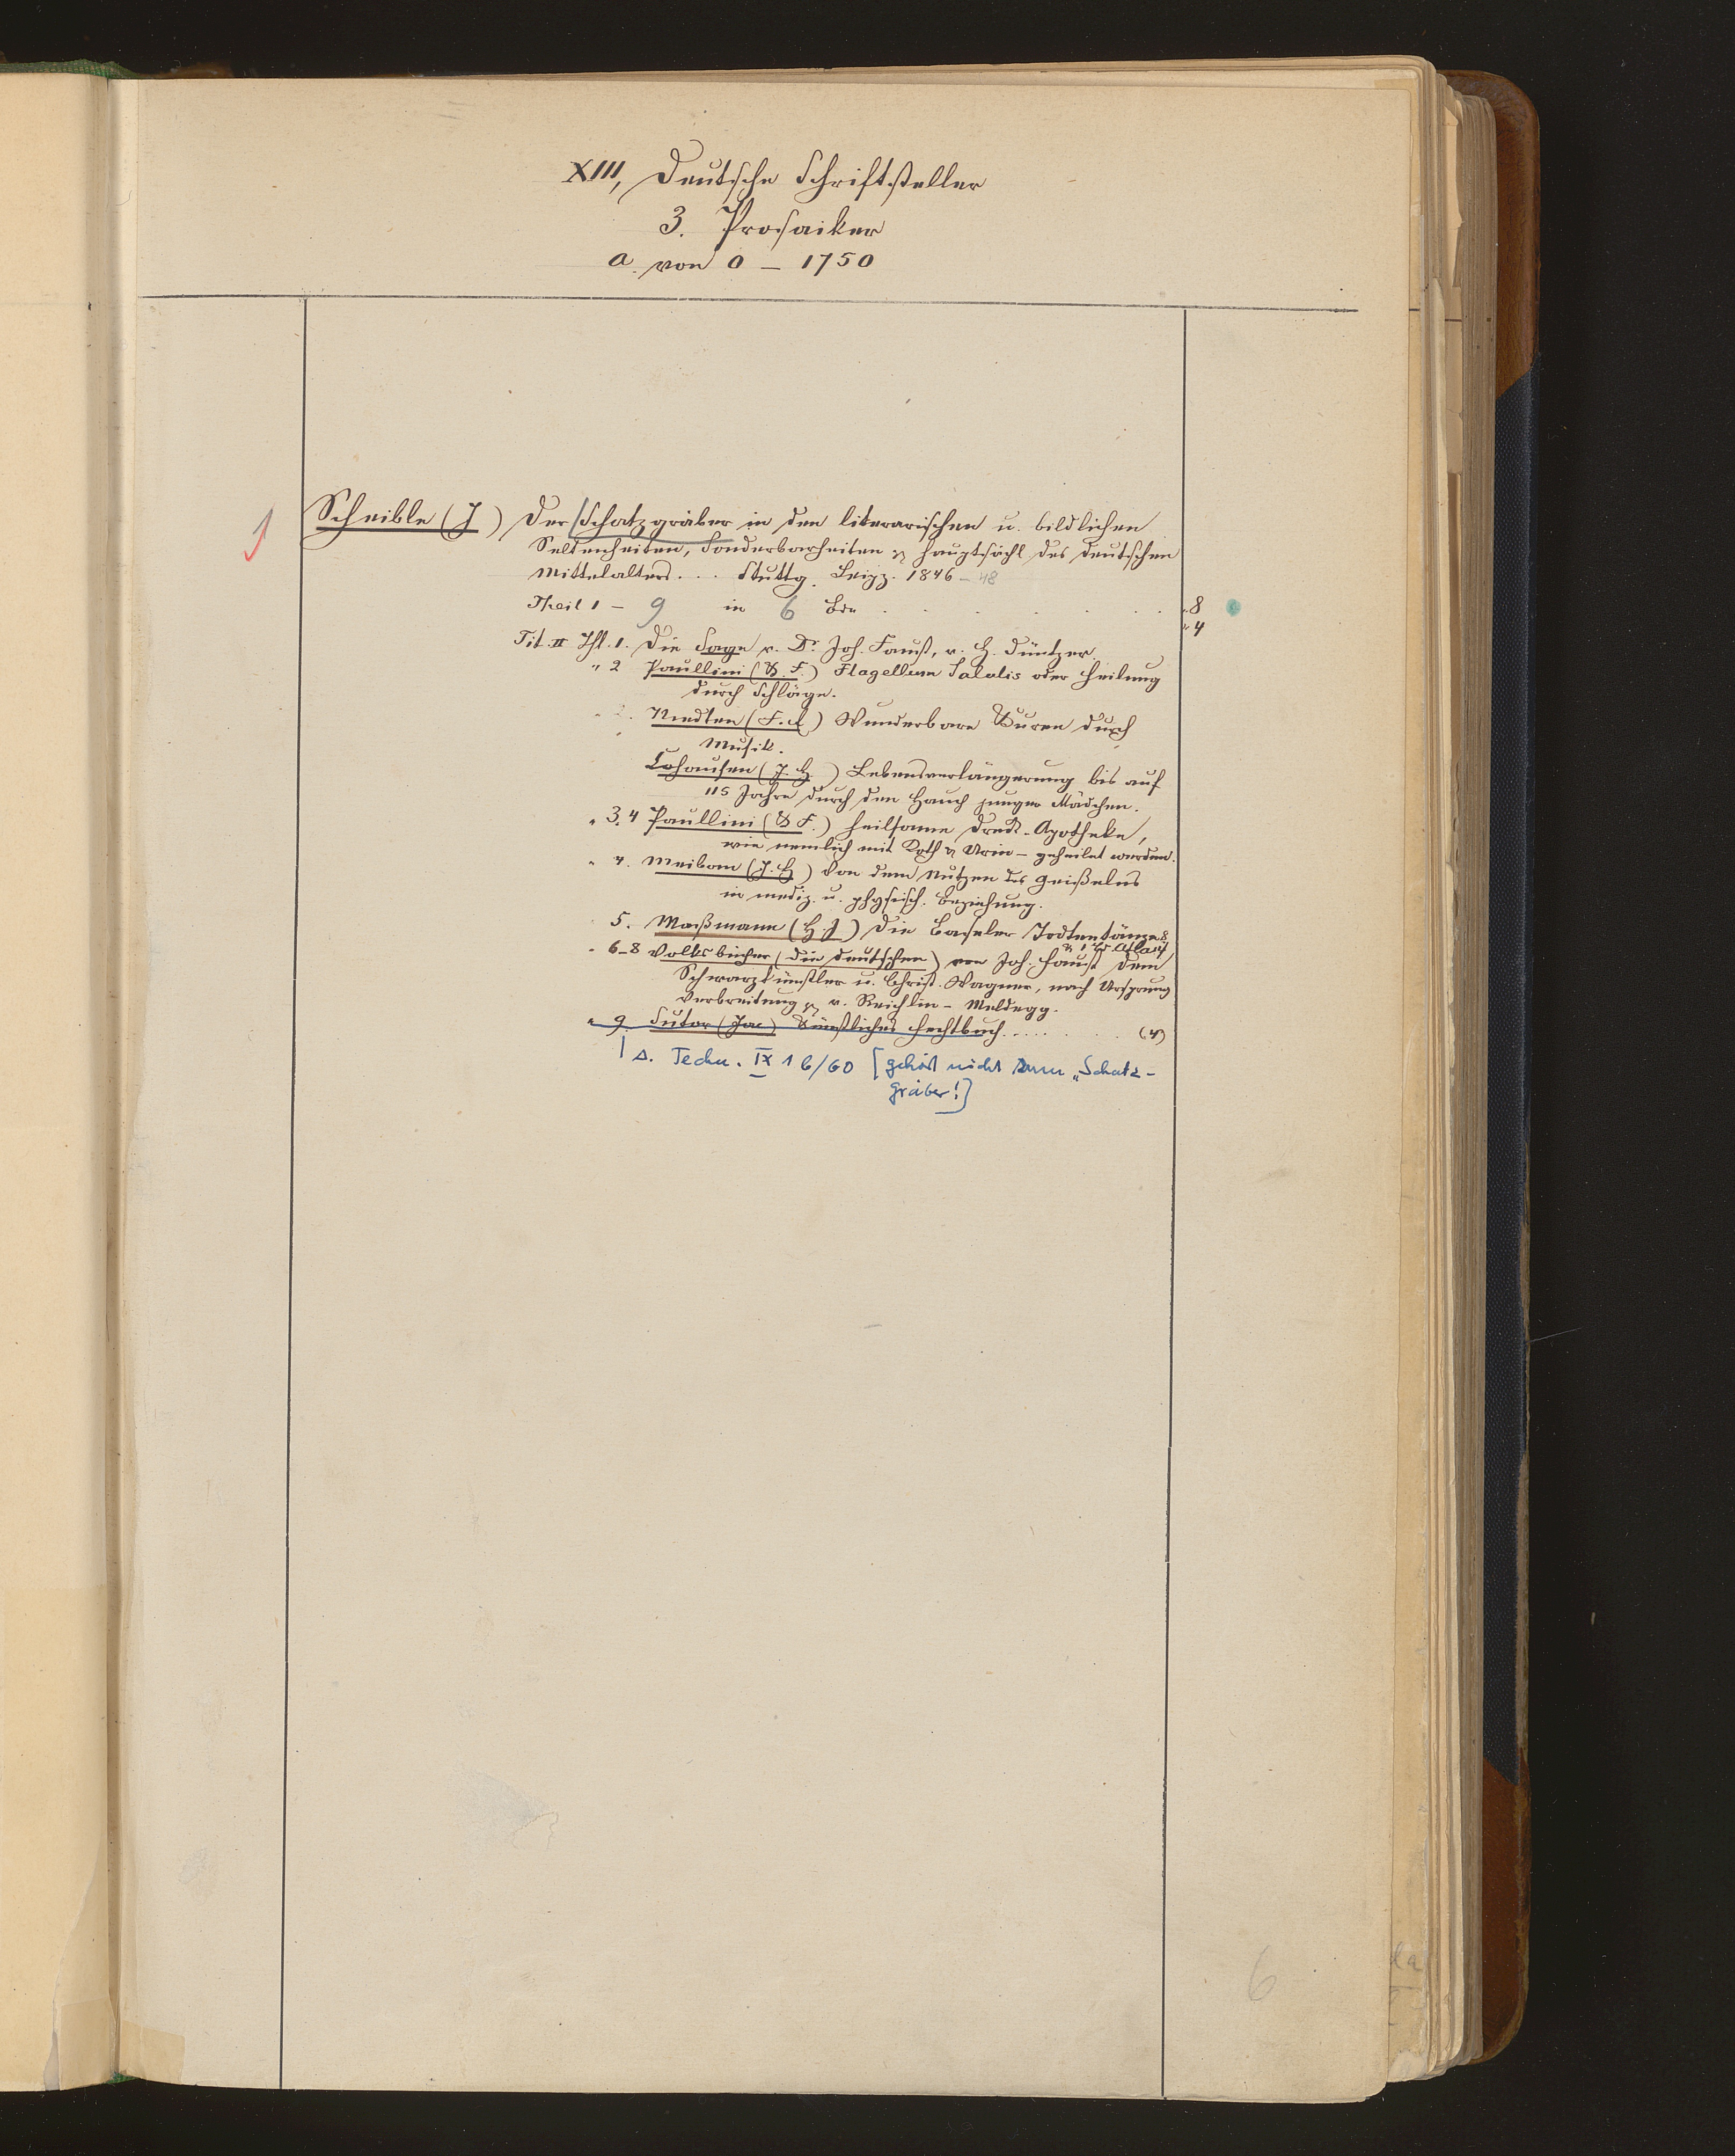 XIII, Deutsche Schriftsteller
3. Prosaiker
a. von 0 – 1750
1
Scheible (J) Der Schatzgräber in den literarischen u. bildlichen
Seltenheiten, Sonderbarheiten & hauptsächl. des deutschen
Mittelalters. . . . Stuttg. Leipz. 1846 – 48
Theil 1 – 9 in 6 Bde . . . . . . . . „ 8
„ 4
Tit. II Thl. 1. Die Sage v. Dr. Joh. Faust, v. H. Düntzer.
„ 2 Paullini (K. F.) Flagellum Salulis oder Heilung
durch Schläge.
„ 2. Niedten (F. A) Wunderbare Kuren durch
Musik.
Cohausen (J. H ) Lebensverlängerung bis auf
115 Jahre durch den Hauch junger Mädchen.
„ 3. 4 Paullini (K F.) heilsame Dreck-Apotheke,
wie nemlich mit Koth & Urin – geheilet werden.
„ 4. Meibom (J. H ) Von dem Nutzen des Geißelns
in mediz. u. physisch. Beziehung.
5. Maßmann (H. J.) Die Baseler Todtentänze 8
& 1 Bd Atlas 4
„ 6–8 Volksbücher (die deutschen) von Joh. Faust dem
Schwarzkünstler u. Christ. Wagner, nach Ursprung
Verbreitung & v. Reichlin-Meldegg.
„ 9. Sutor (Jac) Künstliches Fechtbuch . . . . . . . (4)
s. Techn. IX 16/60 [gehört nicht zum „Schatz-
gräber!]
6